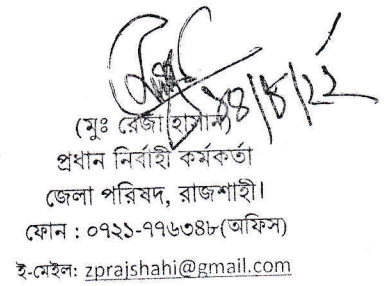 (মুঃ রেজা হাসান)
প্রধান নির্বাহী কর্মকর্তা
জেলা পরিষদ, রাজশাহী।
ফোন : ০৭২১-৭৭৬৩৪৮(অফিস)
ই-মেইল: zprajshahi@gmail.com